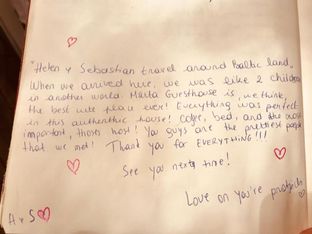 "Helen y Sebastian travel around Baltic land.
When we arrived here, we was like 2 children
in another world. Marta Guesthouse is, we think,
the best place ever! Everything was perfect
in this authenthic house! Coffe, bed, and the most
important, thoses host! You guys are the prettiest people
that we met! Thank you for EVERYTHING!!!
See you next time!
Love on you're
H y S